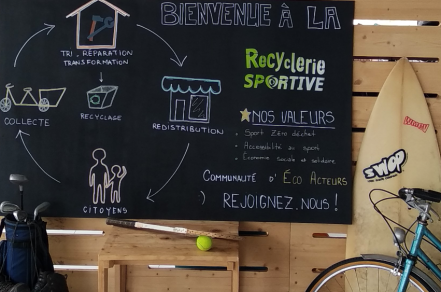 BIENVENUE À LA
Recyclerie
SPORTIVE
TRI - RÉPARATION
TRANSFORMATION
COLLECTE
RECYCLAGE
REDISTRIBUTION
CITOYENS
NOS VALEURS
- Sport Zéro déchet
- Accessibilité au sport
- Economie sociale et solidaire
COMMUNAUTÉ D' ÉCO ACTEURS
REJOIGNEZ.NOUS!
SWOP